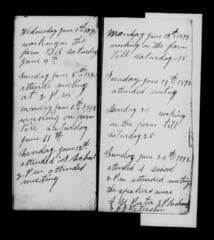 Wednesday June 1th, 1892
working on the
farm till saturday
June 4th
Sunday June 5th, 1892
attended meeting
at 2 P.m
June 6th, 1892
working on farm
till saturday
June 11th
Sunday June 12th
attended S. School
2 P.m attended
meeting
Monday June 13th, 1892
working on the farm
till saturday 18
Sunday June 19th, 1892
attended meeting
working
on the farm till
saturday 25
Sunday June 26th, 1892
attended S School
2 P.m attended meeting
the speakers were
Porter